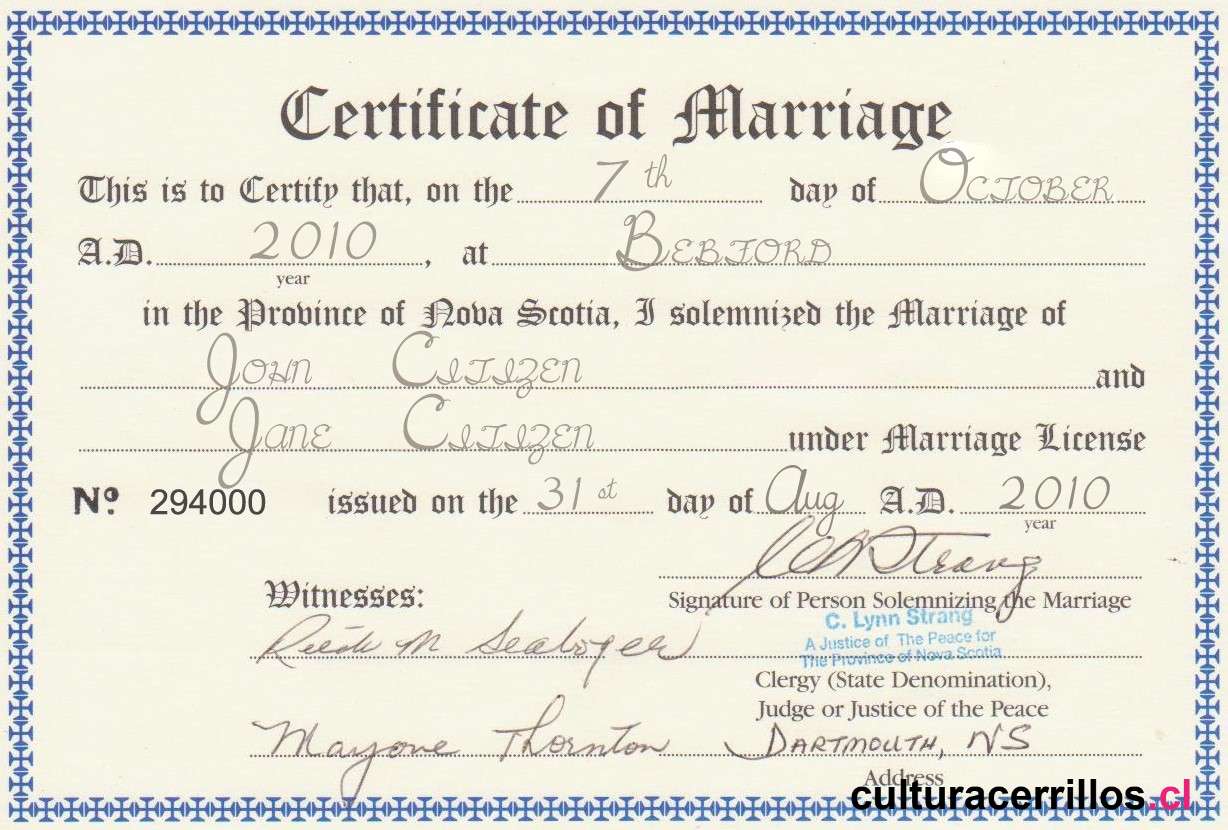 Certificate of Marriage
This is to Certify that, on the 7th day of October
A.D. 2010, at Bebford
year
in the Province of Nova Scotia, I solemnized the Marriage of
John Citizen and
Jane Citizen under Marriage License
No. 294000 issued on the 31st day of Aug A.D. 2010
year
C Strang
Witnesses:
Signature of Person Solemnizing the Marriage
C. Lynn Strang
A Justice of The Peace for
The Province of Nova Scotia
M
Clergy (State Denomination),
Judge or Justice of the Peace
Thornton Dartmouth, NS
Address
culturacerrillos.cl